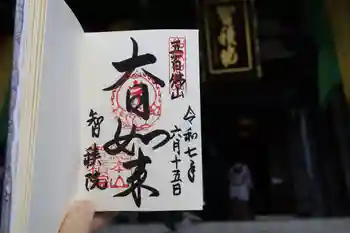 五百佛山
大日如来
智積院
令和七年
六月十五日